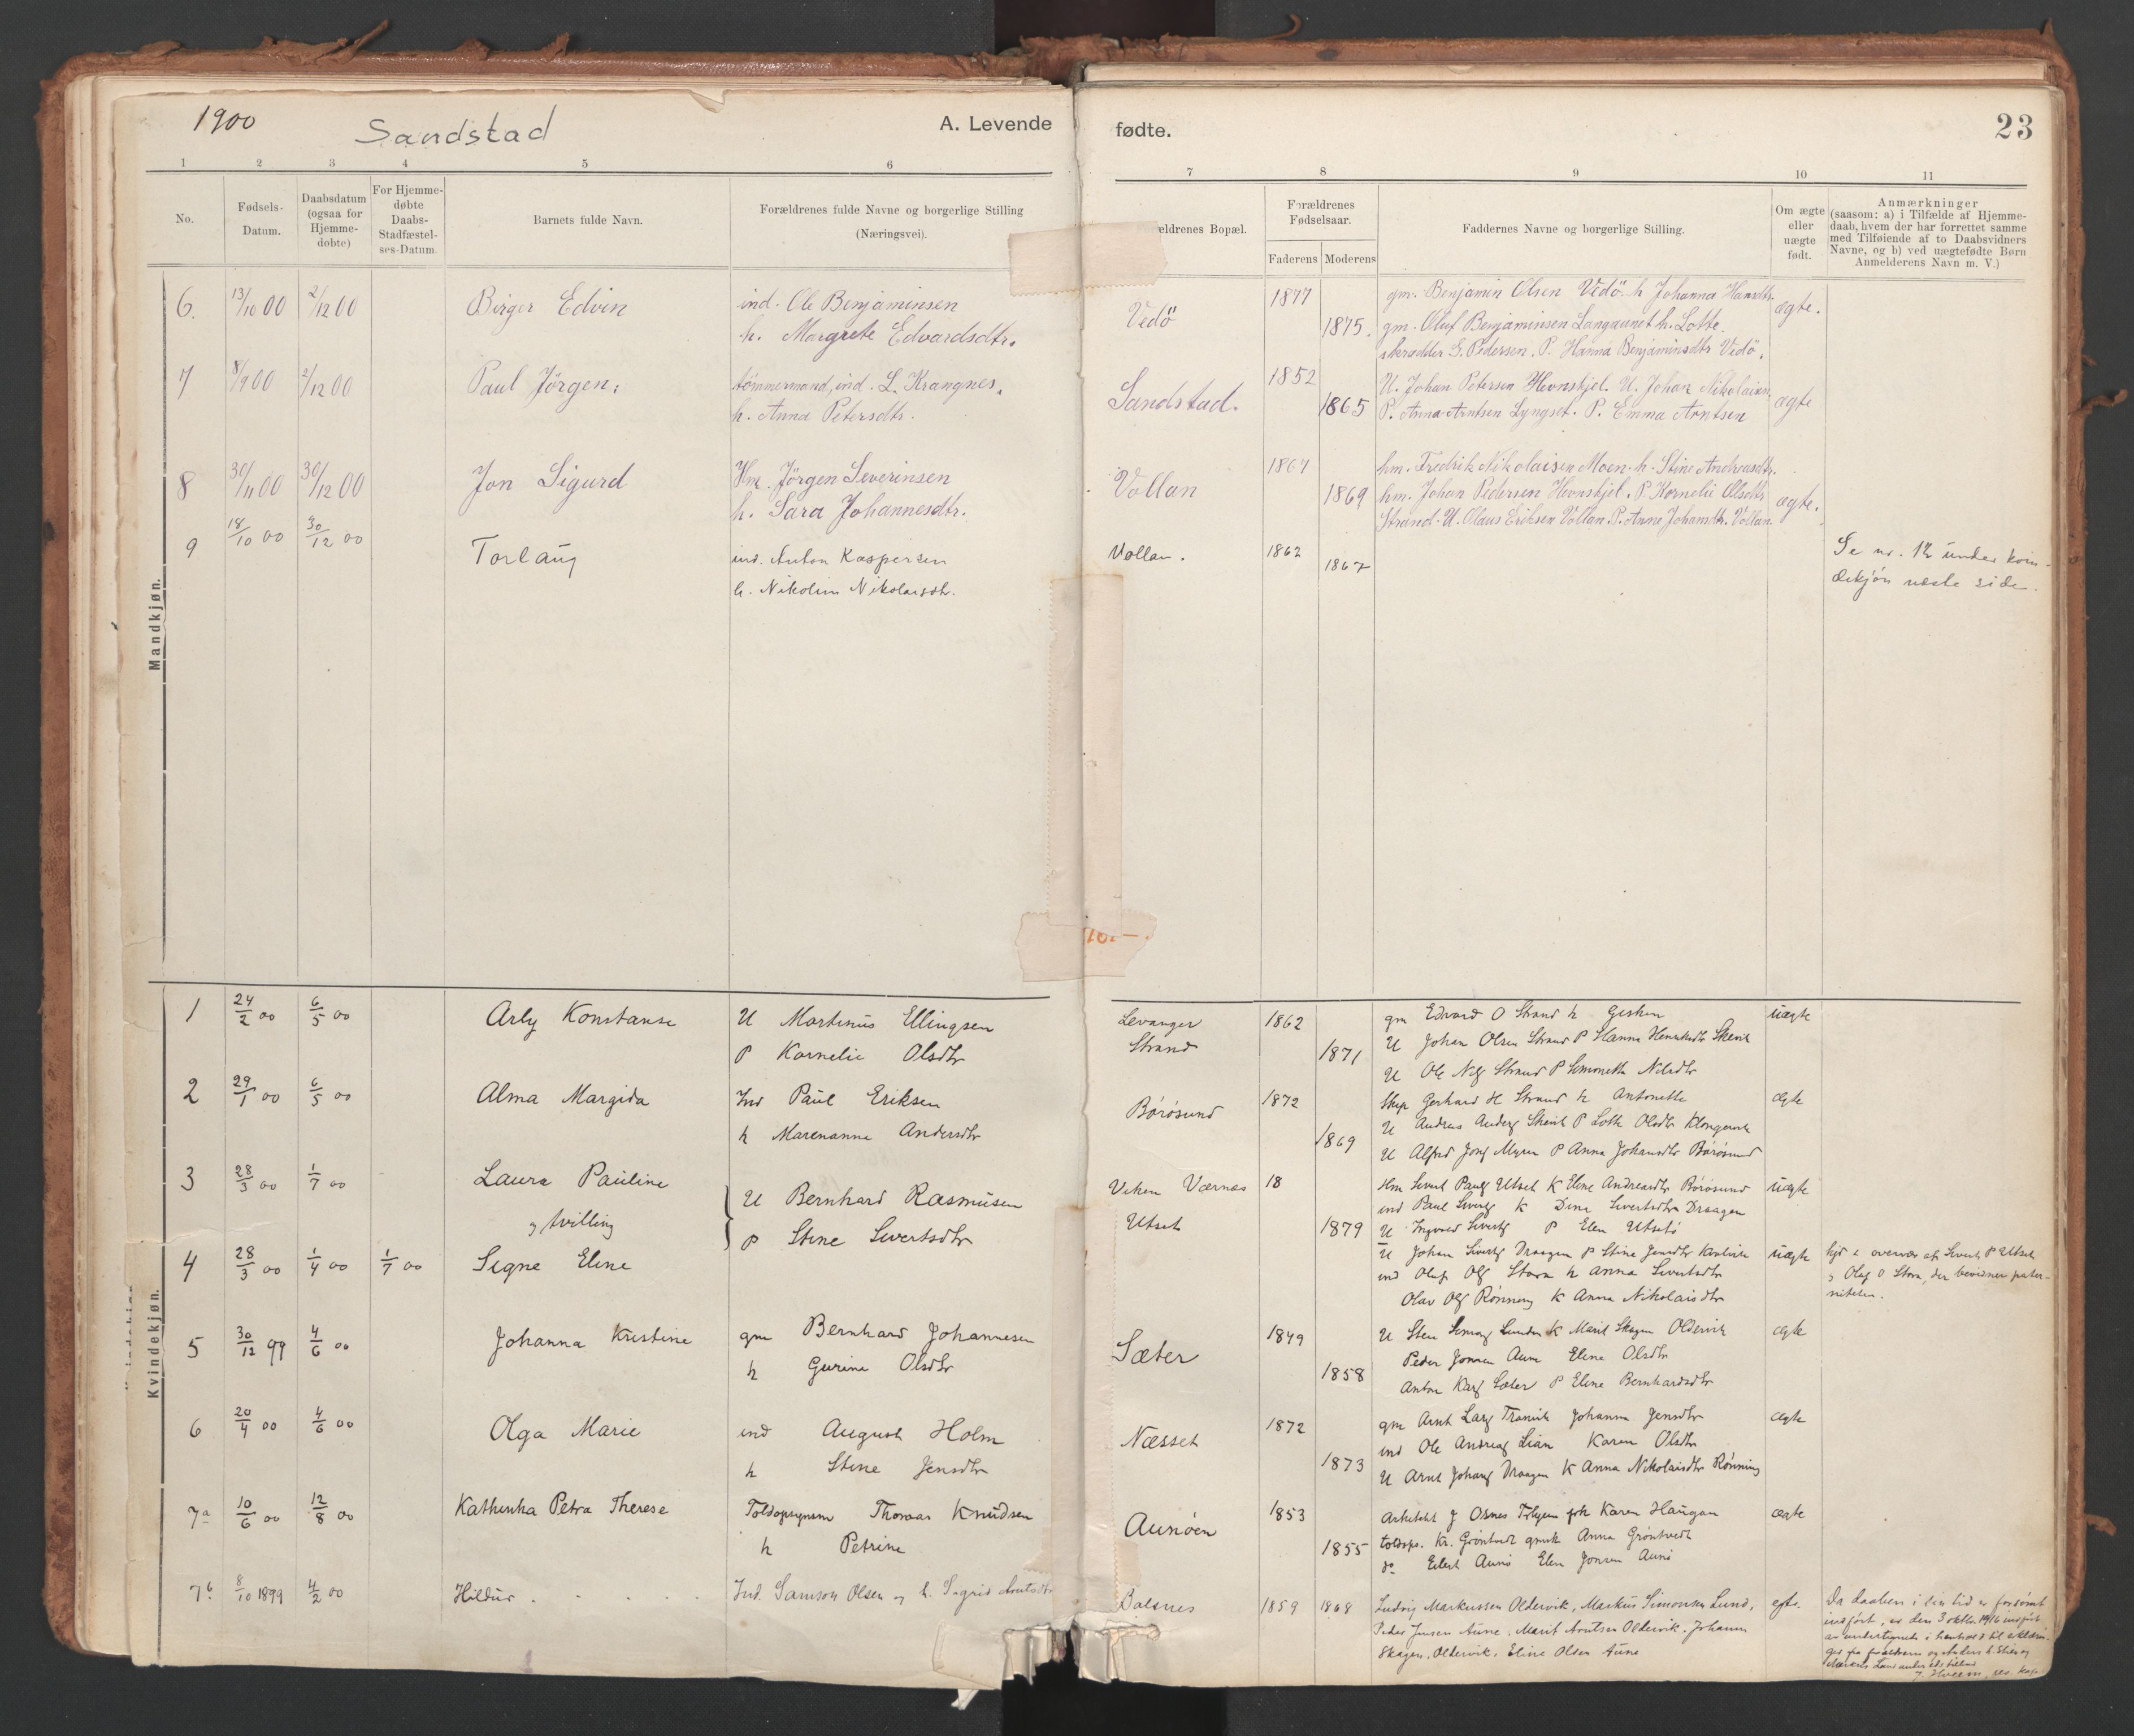 1900
Sandstad
A. Levende
fødte.
23
1 2 3 4 5 6 7 8 9 10 11
No.
Fødsels-
Datum.
Daabsdatum
(ogsaa for
Hjemme-
døbte)
For Hjemme-
døbte
Daabs-
Stadfæstel-
ses-Datum.
Barnets fulde Navn.
Forældrenes fulde Navne og borgerlige Stilling
(Næringsvei).
ældrenes Bopæl.
Forældrenes
Fødselsaar.
Faderens Moderens
Faddernes Navne og borgerlige Stilling.
Om ægte
eller
uægte
født.
Anmærkninger
(saasom: a) i Tilfælde af Hjemme-
daab, hvem der har forrettet samme
med Tilføiende af to Daabsvidners
Navne, og b) ved uægtefødte Børn
Anmelderens Navn m. V.)
Mandkjøn.
6. 13/10 00 2/12 00 Birger Edvin
ind. Ole Benjaminsen
h. Margrete Edvardsdtr.
Vedö
1877
1875.
gm. Benjamin Olsen Vedö. h Johanna Hansdtr.
gm. Oluf Benjaminsen Langaunet h. Lotte.
skrædder G. Pedersen. P. Hanna Benjaminsdtr Vedö.
ægte.
7 8/9 00 2/12 00 Paul Jörgen.
tömmermand, ind. L. Krangnes.
h. Anna Petersdtr.
Sandstad.
1852
1865
U. Johan Petersen Hevnskjel. U. Johan Nikolaisen.
P. Anna Arntsen Lyngset. P. Emma Arntsen
ægte
8 30/11 00 30/12 00 Jon Sigurd
Hm. Jörgen Severinsen
h. Sara Johannesdtr.
Vollan
1867
1869
hm. Fredrik Nikolaisen Moen. h. Stine Andreasdtr.
hm. Johan Pedersen Hevnskjel. P Kornelie Olsdtr
Strand. U. Olaus Eriksen Vollan. P. Anne Johansdtr. Vollan.
ægte.
9 18/10 00 30/12 00 Torlaug
ind. Anton Kaspersen
h. Nikoline Nikolaisdtr.
Vollan.
1862
1867
Se nr. 12 under kvin-
dekjön næste side.
Kvindekjøn.
1 24/2 00 6/5 00 Arly Konstanse
U Martinus Ellingsen
P Kornelie Olsdtr
Levanger
Strand
1862
1871
gm Edvard O Strand h
U Johan Olsen Strand P Hanna
U Ole Strand P Nilsdtr
uægte
2 29/1 00 6/5 00 Alma Margida
Ind Paul Eriksen
h Marenanna Andersdtr
Börösund
1872
1869
Gerhard H Strand h Antonette
U Andreas P Lotte Olsdtr
U Alfred Myren P Anna Johansdtr Börösund
ægte
3 28/3 00 1/7 00 Laura Pauline
tvilling
U Bernhard Rasmusen
P Stine Sivertsdtr
Viken Værnes
Utset
18
1879
Hm Sivert Utset K Eline Andreasdtr Börösund
ind Paul K Dina Sivertsdtr Draagen
U Ingvald P Elen Utset
uægte
4 28/3 00 1/4 00 1/7 00 Signe Eline
U Johan Draagen P Stine Jensdtr
ind Oluf Storø h Anna Sivertsdtr
Olav Rönning K Anna Nikolaisdtr
uægte
hjd i overvær af Sivert P Utset
og Olaf O Storø, der bevidner pater-
niteten.
5 30/12 99 4/6 00 Johanna Kristine
gm Bernhard Johannesen
h Gurine Olsdtr
Sæter
1849
1858
U Sten Lunden K Marit Skagen Oldervik
Peder Jonsen Aune Eline Olsdtr
Anton Sæter P Eline Bernhardsdtr
ægte
6 20/4 00 4/6 00 Olga Marie
ind August Holm
h Stine Jensdtr
Næsset
1872
1873
gm Arnt Tranvik Johanna Jensdtr
ind Ole Lian Karen Olsdtr
U Arnt Draagen K Anna Nikolaisdtr Rönning
ægte
7a 10/6 00 12/8 00 Kathinka Petra Therese
Toldopsynsm Thomas Knudsen
h Petrine
Aunöen
1853
1855
Arkitekt J Osnes frk Karen Haugan
toldops. Kr. Gröntvedt Anna Gröntvedt
do Eilert Aunö Elen Jonsen Aunö
ægte
7b 8/10 1899 4/2 00 Hildur
Ind. Samson Olsen og h. Sigrid Arntsdtr
Balsnes
1859 1868
Ludvig Markussen Oldervik, Markus Simonsen Lund,
Peder Jensen Aune, Marit Arntsen Oldervik, Johanna
Skagen, Oldervik, Eline Olsen Aune
egte.
Da daaben i sin tid er forsømt
indført, er den 3 oktbr. 1916 indført
av undertegnede i henhold til erklærin-
ger fra forældrene og
J. Hveem, res. kap.